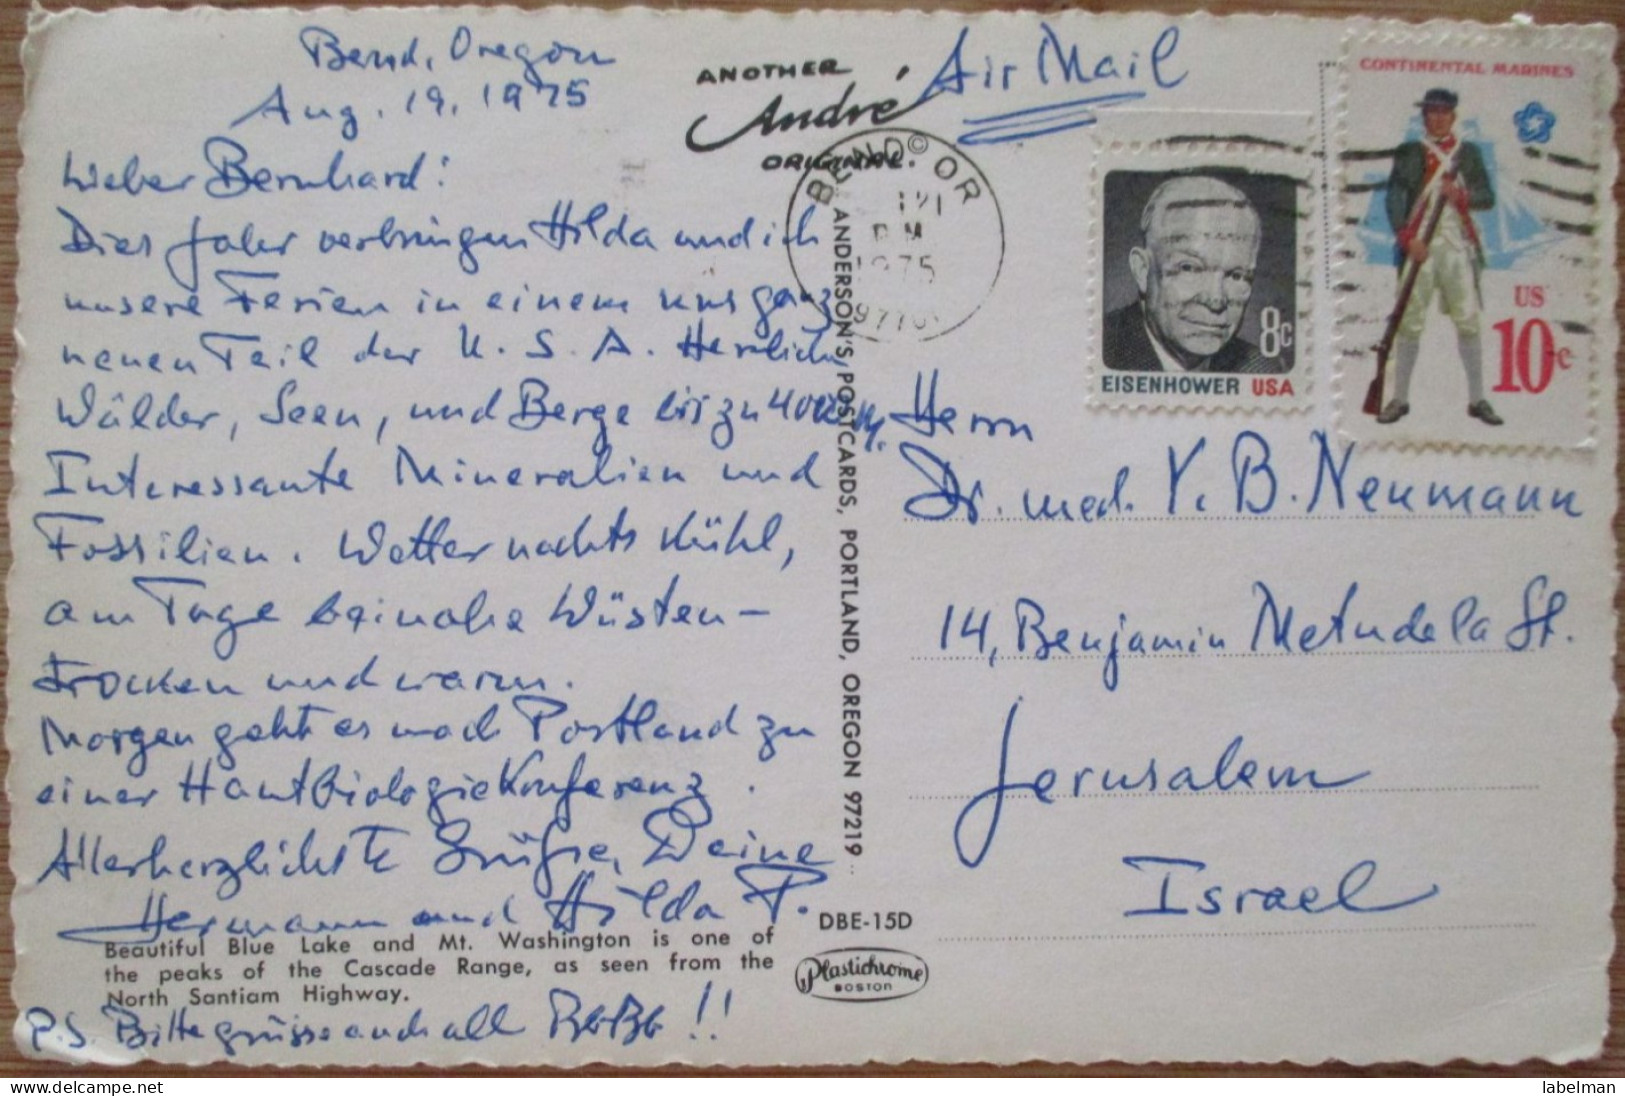 Bend, Oregon
Aug. 19, 1975
Lieber Bernhard!
Dies Jahr verbringen Hilda und ich
unsere Ferien in einem uns ganz
neuen Teil der U. S. A. Herrliche
Wälder, Seen, und Berge bis zu 4000 M.
Interessante Mineralien und
Fossilien. Wetter nachts kühl,
am Tage beinahe Wüsten-
trocken und warm.
Morgen geht es nach Portland zu
einer Hautbiologiekonferenz.
Allerherzlichste Grüße, Deine
Hermann und Hilda P.
Beautiful Blue Lake and Mt. Washington is one of
the peaks of the Cascade Range, as seen from the
North Santiam Highway.
P.S. Bitte grüsse auch all
ANOTHER
André
ORIGINAL.
©
ANDERSON'S POSTCARDS, PORTLAND, OREGON 97219
DBE-15D
Plastichrome
BOSTON
Air Mail
BEND OR
PM
1975
EISENHOWER USA
8c
CONTINENTAL MARINES
US
10c
Herrn
Dr. med. Y. B. Neumann
14, Benjamin Metudela St.
Jerusalem
Israel
labelman